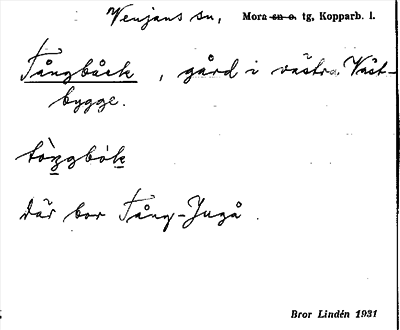 Venjans sn, Mora sn o. tg, Kopparb. l.
Tångbäck, gård i västra Väst-
bygge.
tòngbók
där bor Tång-Jugå.
Bror Lindén 1931